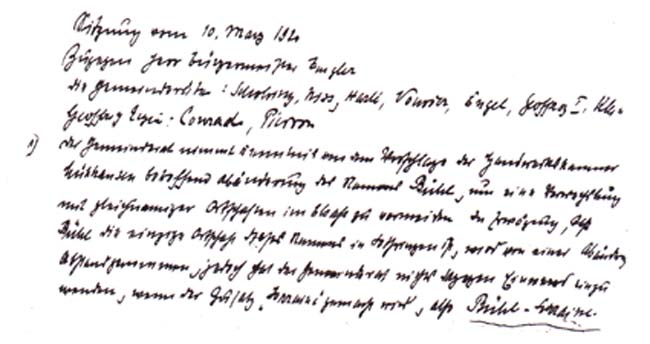 Sitzung vom 10. März 1920
Zugegen Herr Bürgermeister
die Gemeinderäte: Hartl, Vouriot, Engel, Geoffroy I.
Geoffroy Conrad, Pierron
1) der Gemeinderat nimmt Kenntnis von dem Vorschlage der Handwerkskammer
betreffend Abänderung des Namens Bühl, um eine Verwechslung
mit gleichnamiger Ortschaften im Elsaß zu vermeiden. In Erwägung, daß
Bühl die einzige Ortschaft dieses Namens in Lothringen ist, wird von einer Abänderung
Abstand genommen, jedoch hat der Gemeinderat nichts dagegen einzu
wenden, wenn der Zusatz Lorraine gemacht wird, also Bühl-Lorraine.